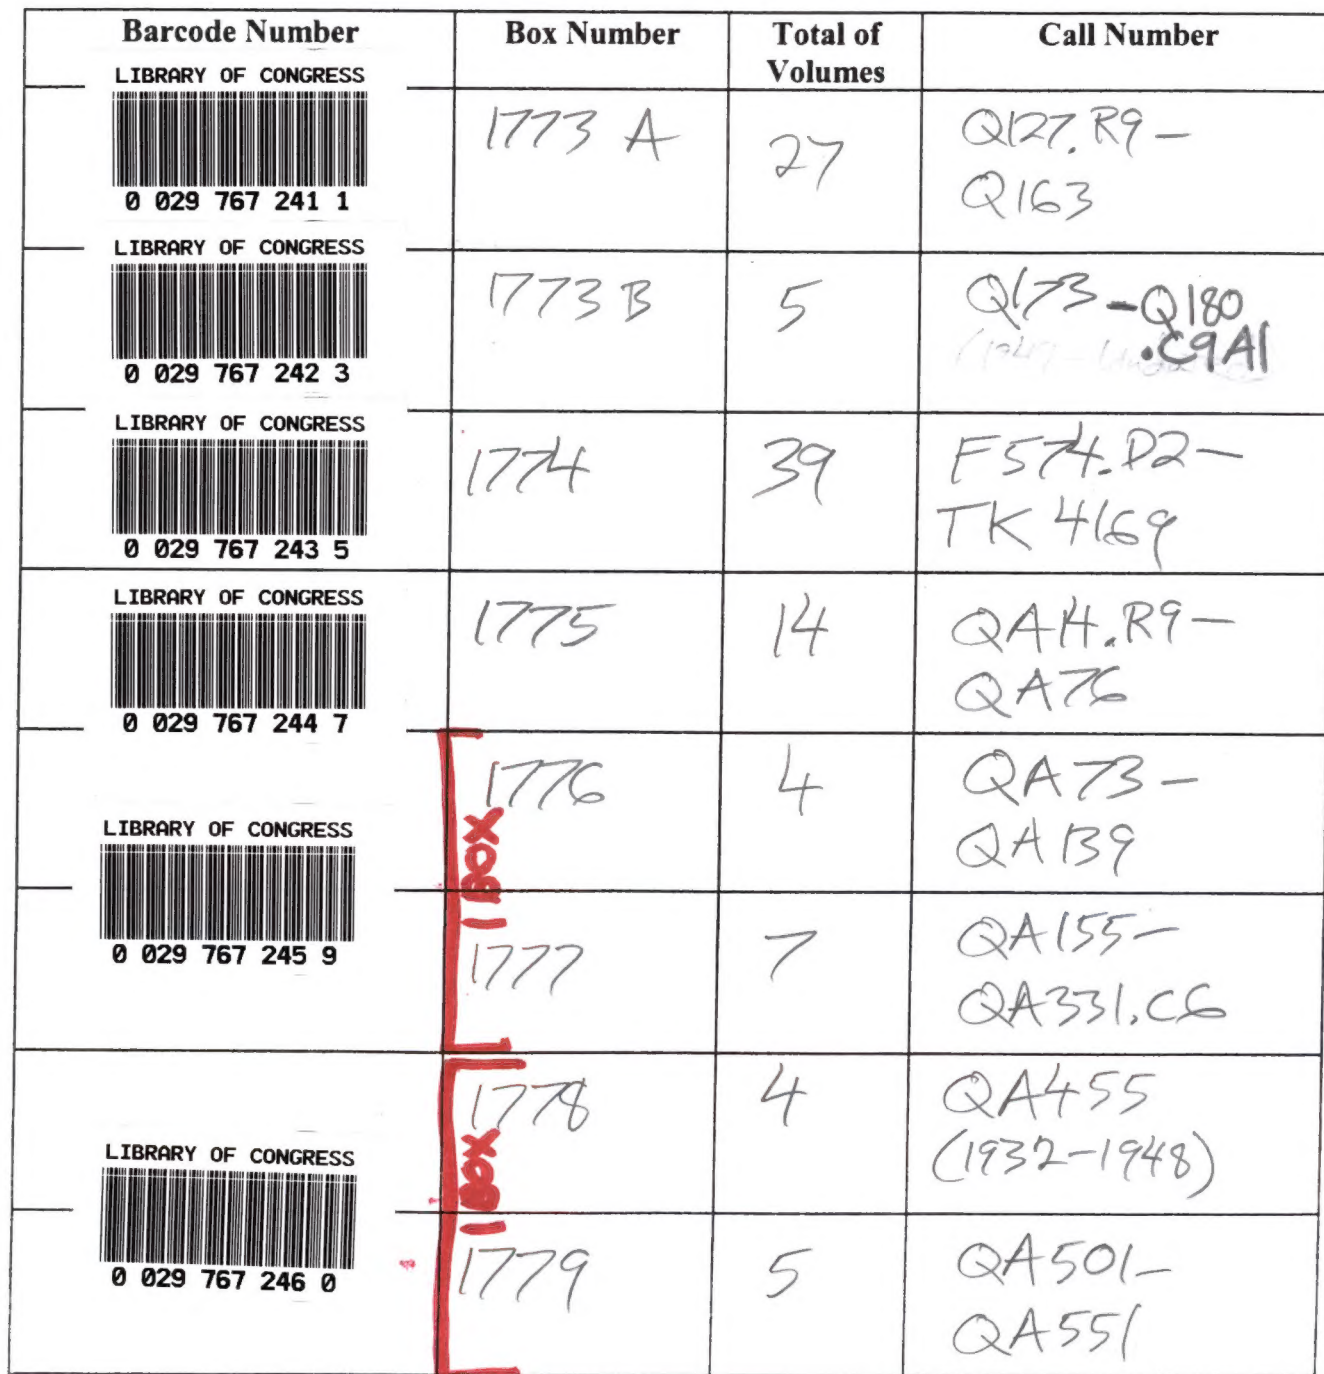 Barcode Number Box Number Total of Volumes Call Number
LIBRARY OF CONGRESS
0 029 767 241 1
1773 A 27 Q127.R9 –
Q163
LIBRARY OF CONGRESS
0 029 767 242 3
1773 B 5 Q173 – Q180
.C9A1
LIBRARY OF CONGRESS
0 029 767 243 5
1774 39 F574.D2 –
TK 4169
LIBRARY OF CONGRESS
0 029 767 244 7
1775 14 QA14.R9 –
QA76
LIBRARY OF CONGRESS
0 029 767 245 9
1 BOX
1776 4 QA73 –
QA139
1777 7 QA155 –
QA331.C6
LIBRARY OF CONGRESS
0 029 767 246 0
1 BOX
1778 4 QA455
(1932-1948)
1779 5 QA501 –
QA551